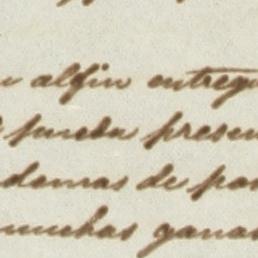 alfin entreg
pueda presen
demas de pa
muchas ganas